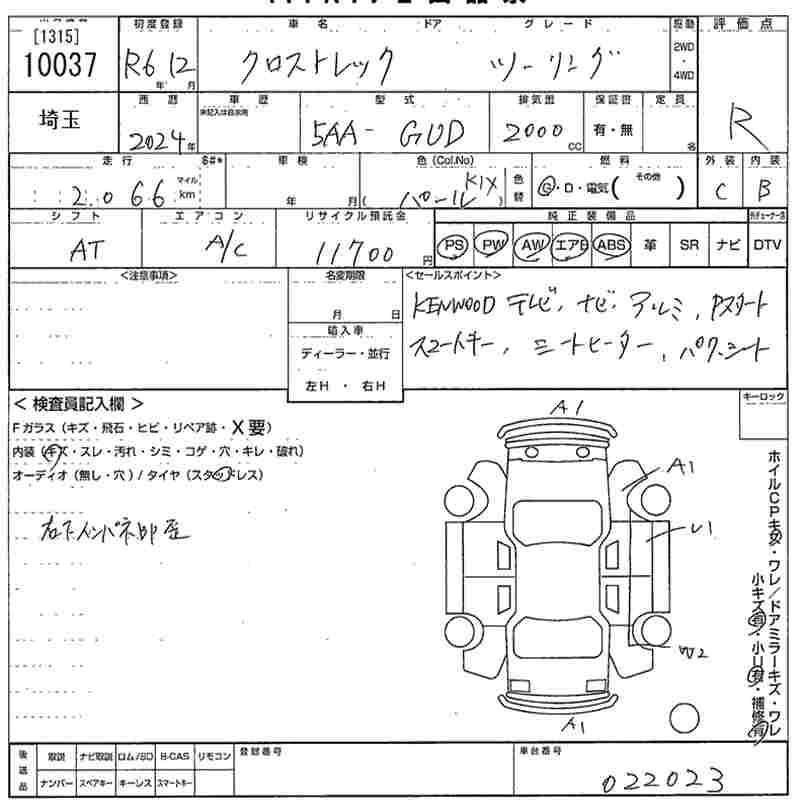 [1315]
10037
初度登録
R6 12
年 月
車名 ドア グレード
クロストレック ツーリング
駆動
2WD
・
4WD
評価点
R
埼玉
西暦
2024年
車歴
未記入は自家用
型式
5AA- GUD
排気量
2000
CC
保証書
有・無
定員
名
走行 $#*
2066
マイル
km
車検
年 月
色(Col.No)
パール K1X
色替
燃料
G・D・電気( その他 )
外装
C
内装
B
シフト
AT
エアコン
A/C
リサイクル預託金
11700円
純正装備品
PS PW AW エアB ABS 革 SR ナビ
DTV
<注意事項>
名変期限
月 日
輸入車
ディーラー・並行
左H ・ 右H
<セールスポイント>
KENWOOD テレビ, ナビ, アルミ, Pスタート
スマートキー, シートヒーター, パワーシート
< 検査員記入欄 >
Fガラス (キズ・飛石・ヒビ・リペア跡・X要)
内装 (キズ・スレ・汚れ・シミ・コゲ・穴・キレ・破れ)
オーディオ (無し・穴) / タイヤ (スタッドレス)
右下インパネ部
キーロック
A1
A1
U1
W2
A1
ホイルCPキズ・ワレ/ドアミラーキズ・ワレ
小キズ有・小U有・補修有
後送品
取説 ナビ取説 ロム/SD B-CAS リモコン
ナンバー スペアキー キーレス スマートキー
登録番号
車台番号
022023